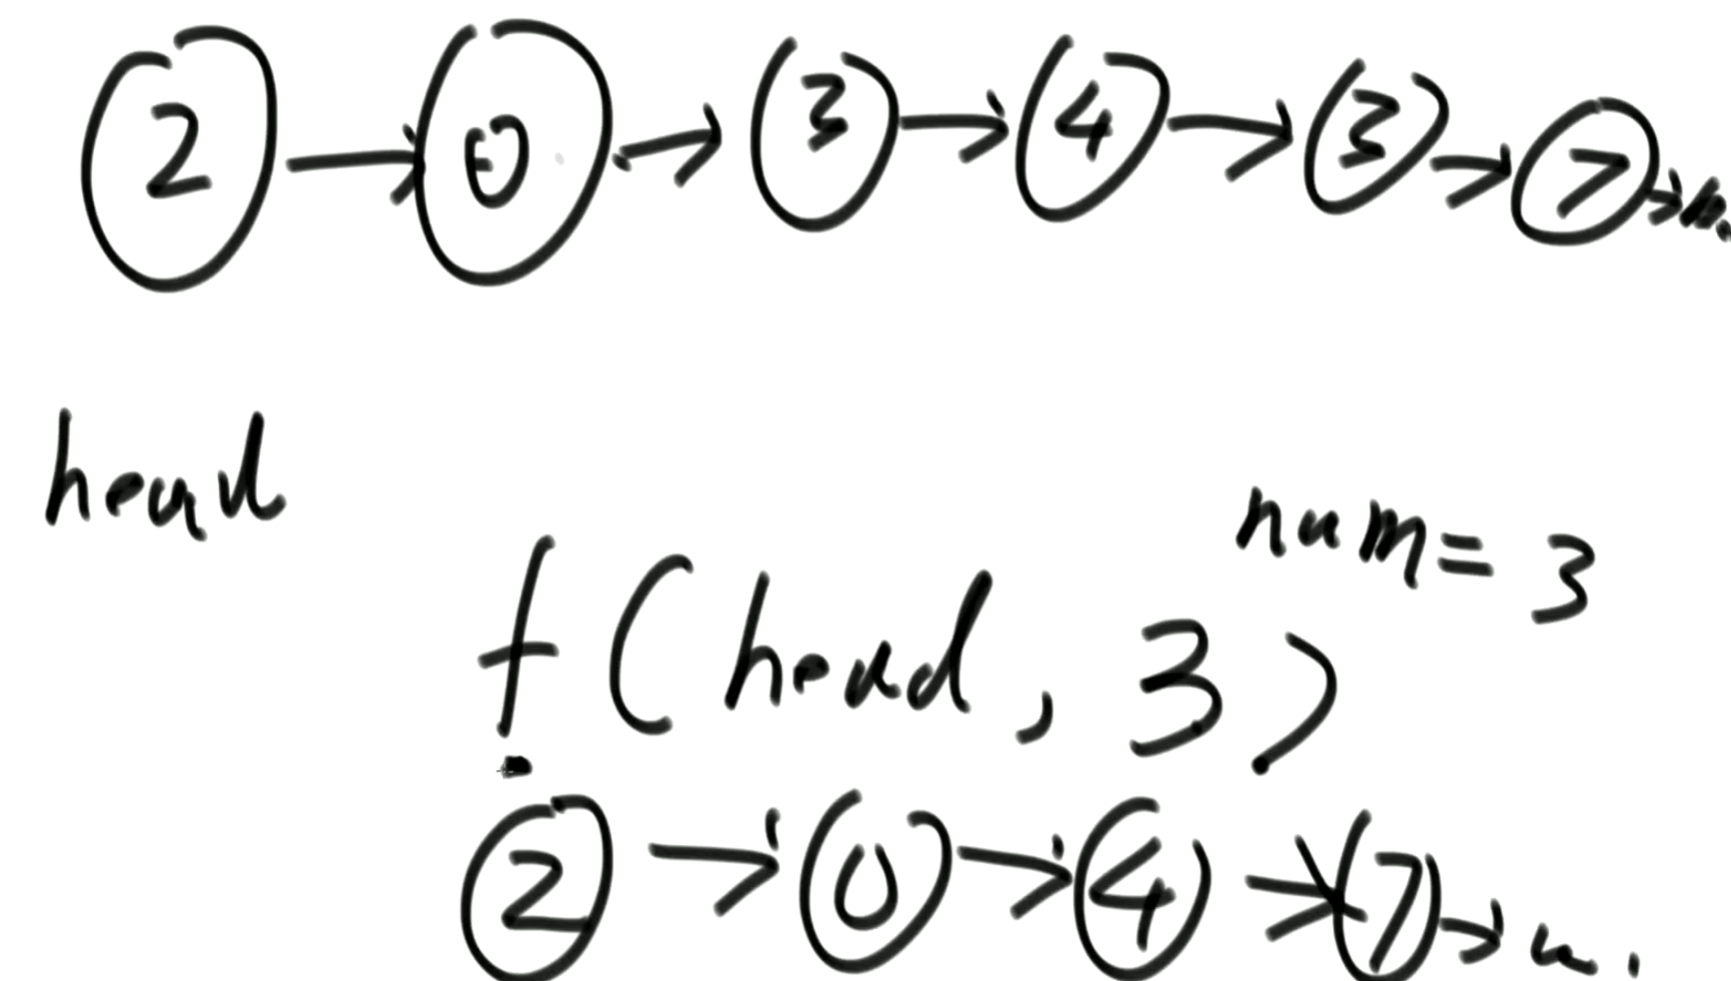 2 → 0 → 3 → 4 → 3 → 7 →
head
num = 3
f ( head , 3 )
2 → 0 → 4 → 7 →